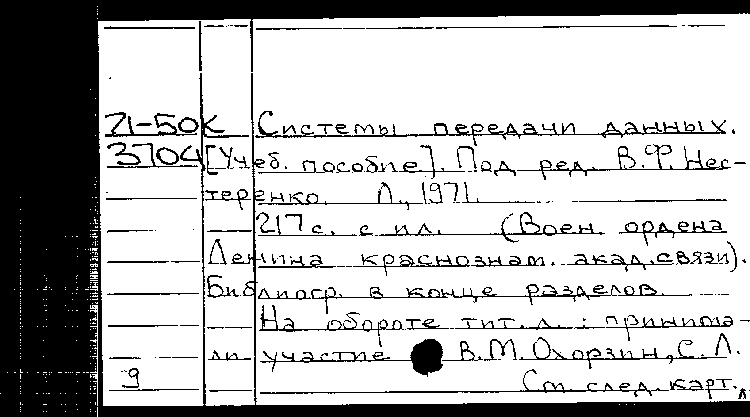 71-50к Системы передачи данных.
3704 [Учеб. пособие]. Под ред. В.Ф. Нес-
теренко. Л., 1971.
217с. с ил. (Воен. ордена
Ленина краснознам. акад. связи).
Библиогр. в конце разделов.
На обороте тит. л.: принима-
ли участие В.М. Охорзин, С.Л.
9 См. след. карт.